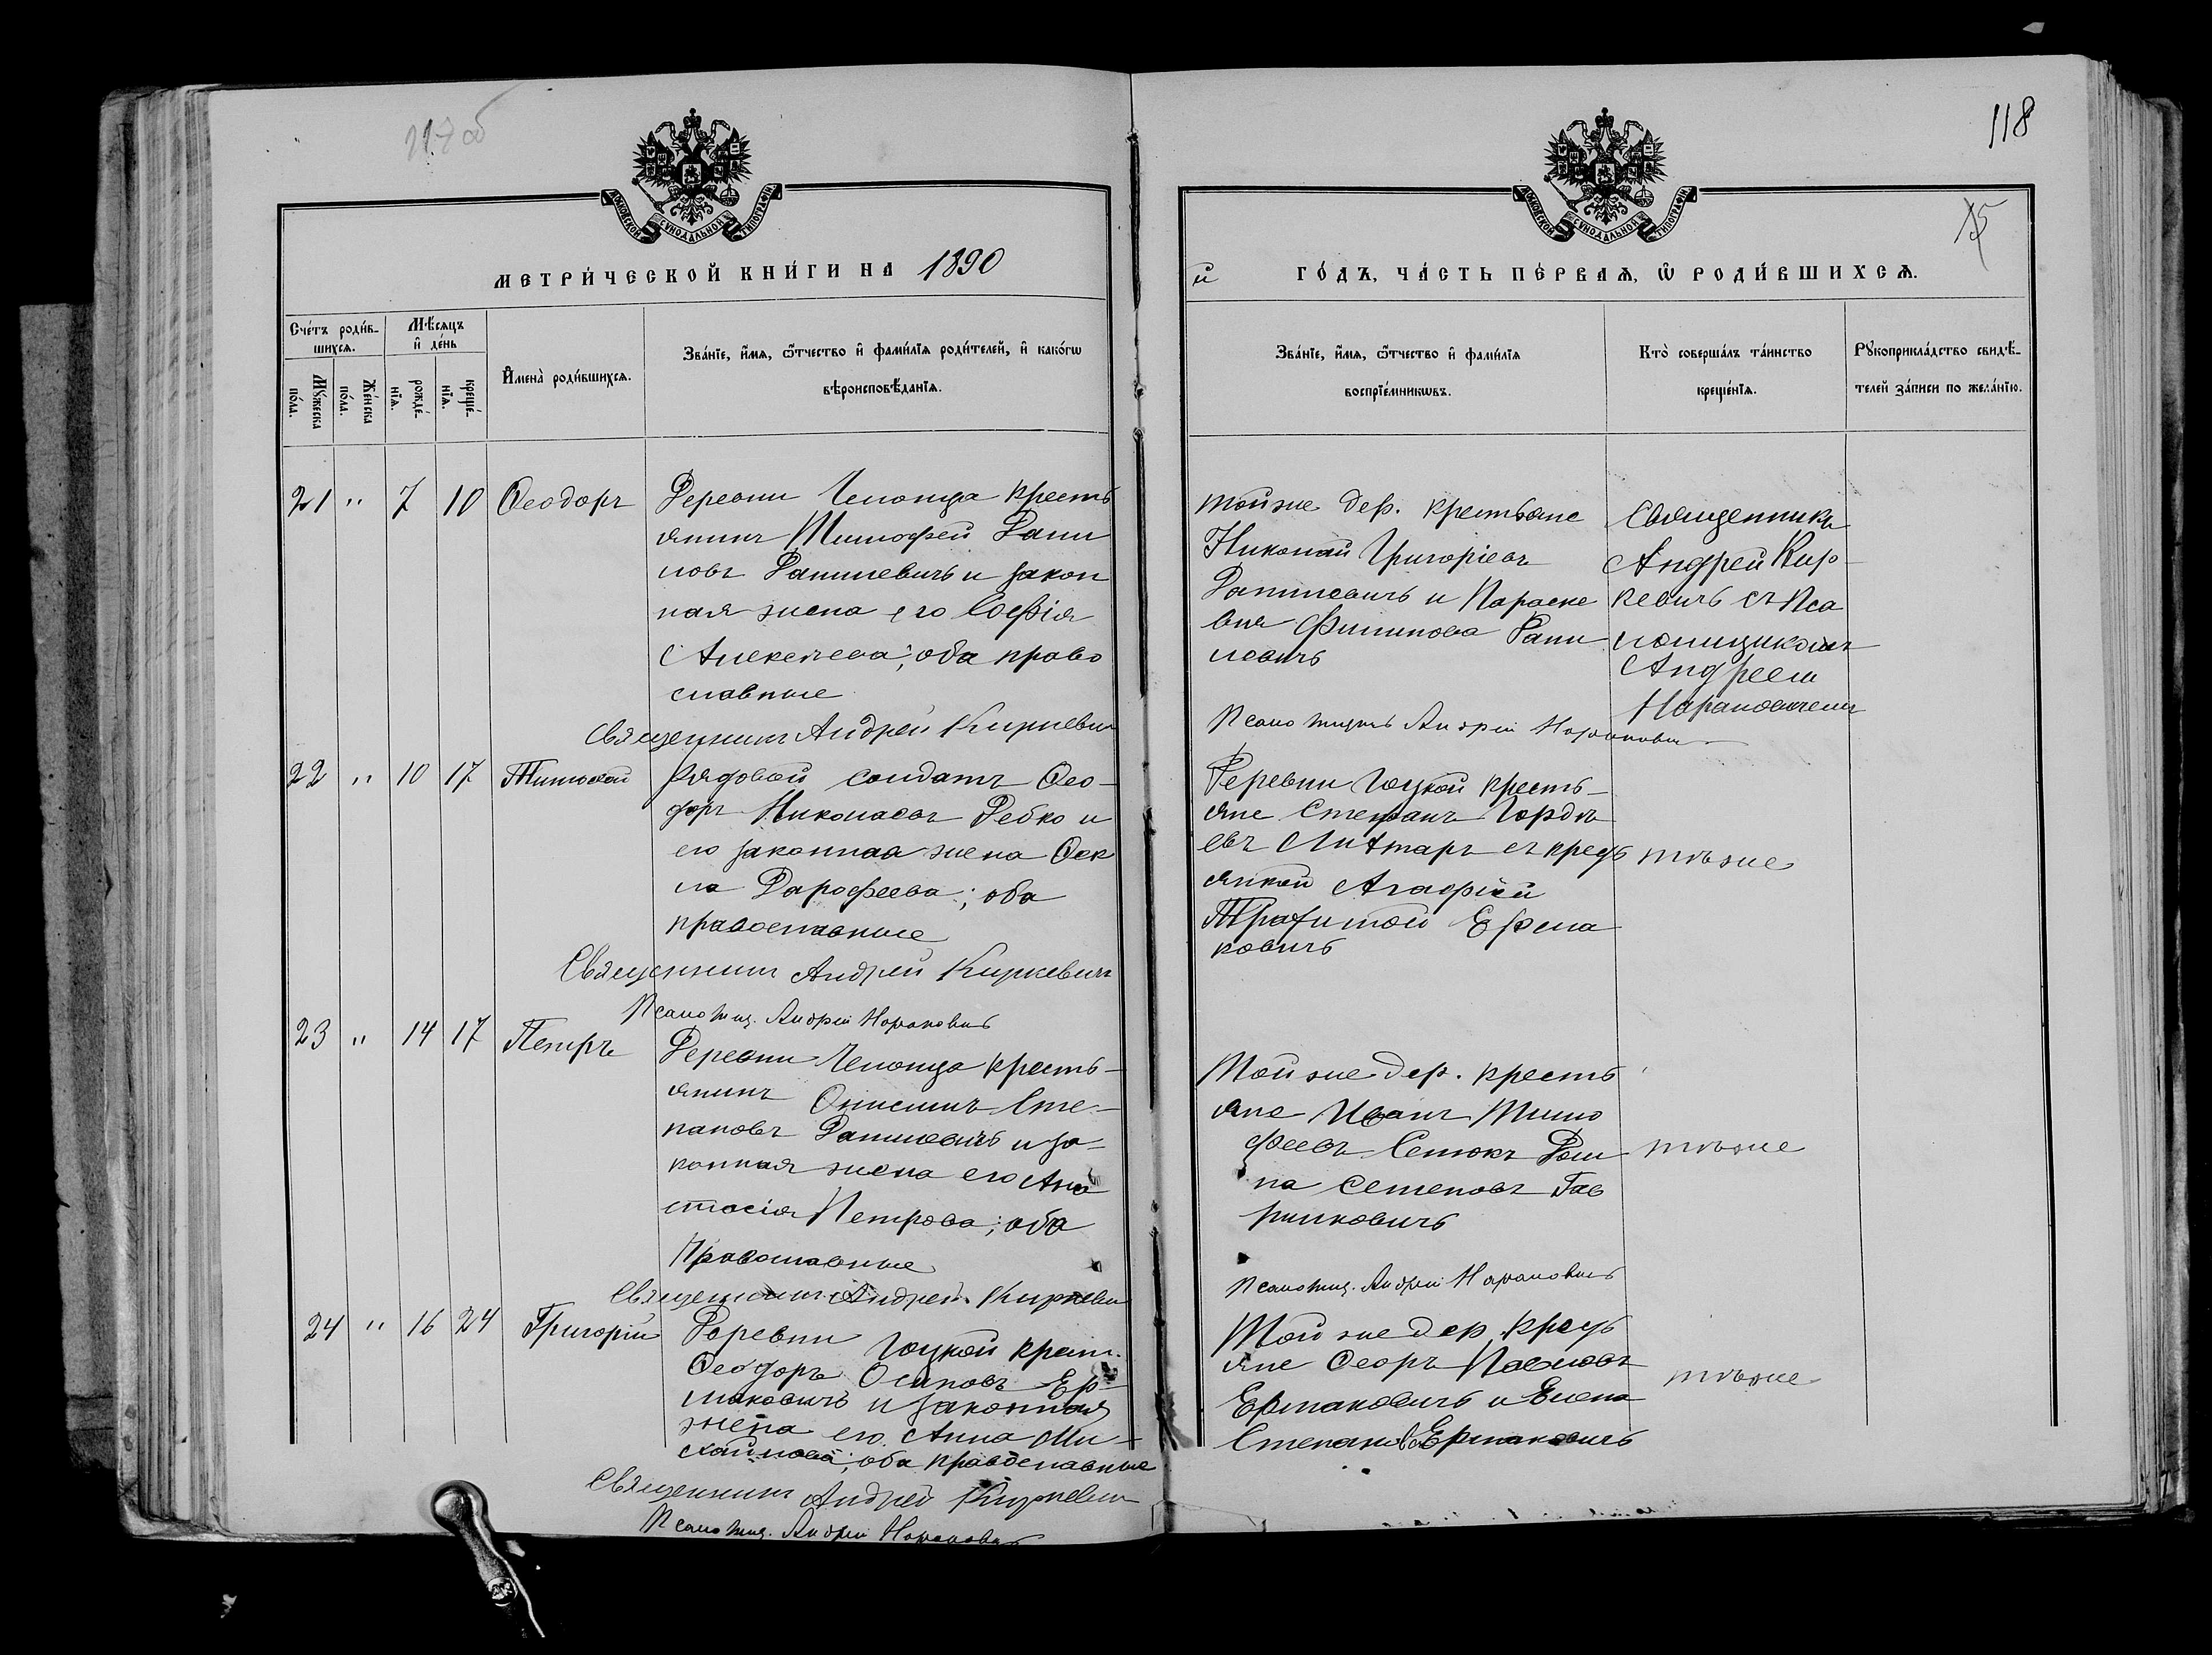 117 об
118
МОСКОВСКОЙ СУНОДАЛЬНОЙ ТИПОГРАФІИ
МОСКОВСКОЙ СУНОДАЛЬНОЙ ТИПОГРАФІИ
75
МЕТРИ́ЧЕСКОЙ КНИ́ГИ НА 1890
й ГО́ДЪ, ЧА́СТЬ ПЕ́РВАѦ, Ѿ РОДИ́ВШИХСѦ.
Сче́тъ роди́в-
шихсѧ.
Мѣ́сѧцъ
и҆ де́нь
Мꙋ́жеска
по́ла.
Же́нска
по́ла.
рожде́-
нїѧ.
креще́-
нїѧ.
И҆мена̀ роди́вшихсѧ.
Зва́нїе, и҆́мѧ, ѻ҆́тчество и҆ фами́лїѧ роди́телей, и҆ како́гѡ
вѣроисповѣ́данїѧ.
Зва́нїе, и҆́мѧ, ѻ҆́тчество и҆ фами́лїѧ
воспрїе́мникѡвъ.
Кто̀ соверша́лъ та́инство
креще́нїѧ.
Рꙋкоприкла́дство свидѣ́-
телей за́писи по жела́нїю.
21 " 7 10 Ѳеодоръ
Деревни Челонца кресть
янинъ Тимофей Дани
ловъ Данилевичъ и закон
ная жена его Софія
Алексѣева; оба право
славные
Священникъ Андрей Киркевич
тойже дер. крестьяне
Николай Григоріевъ
Данилевичъ и Параске
вія Филипова Дани
левичъ
Псаломщикъ Андрей Наранович
Священникъ
Андрей Кир
кевичъ съ Пса
ломщикомъ
Андреем
Нарановичемъ
22 " 10 17 Тимофей
Рядовой солдатъ Ѳео-
доръ Николаевъ Ребко и
его законная жена Ѳек
ла Дарофеева; оба
православные
Священникъ Андрей Киркевичъ
Псаломщ. Андрей Нарановичъ
Деревни Гоцкой кресть-
яне Стефанъ Гордѣ
евъ Литаръ съ крест
янкой Агафіей
Ерма
ковичъ
тѣже
23 " 14 17 Петръ
Деревни Челонца кресть-
янинъ Онисимъ Сте-
пановъ Данилевичъ и за-
конная жена его Ана
стасія Петрова; оба
Православные
Священникъ Андрей Киркевич
Той же дер. кресть
яне Иванъ Тимо
феевъ Сенюкъ Дом
на Семенова Гав
рилковичъ
Псаломщ. Андрей Нарановичъ
тѣже
24 " 16 24 Григорій
Деревни Гоцкой крест.
Ѳеодоръ Осиповъ Ер-
маковичъ и законная
жена его Анна Ми-
хайлова; оба православные
Священникъ Андрей Киркевич
Псаломщ. Андрей Нарановичъ
Той же дер. крест
яне Павловъ
Ермаковичъ и Елена
Степанова Ермаковичъ
тѣже